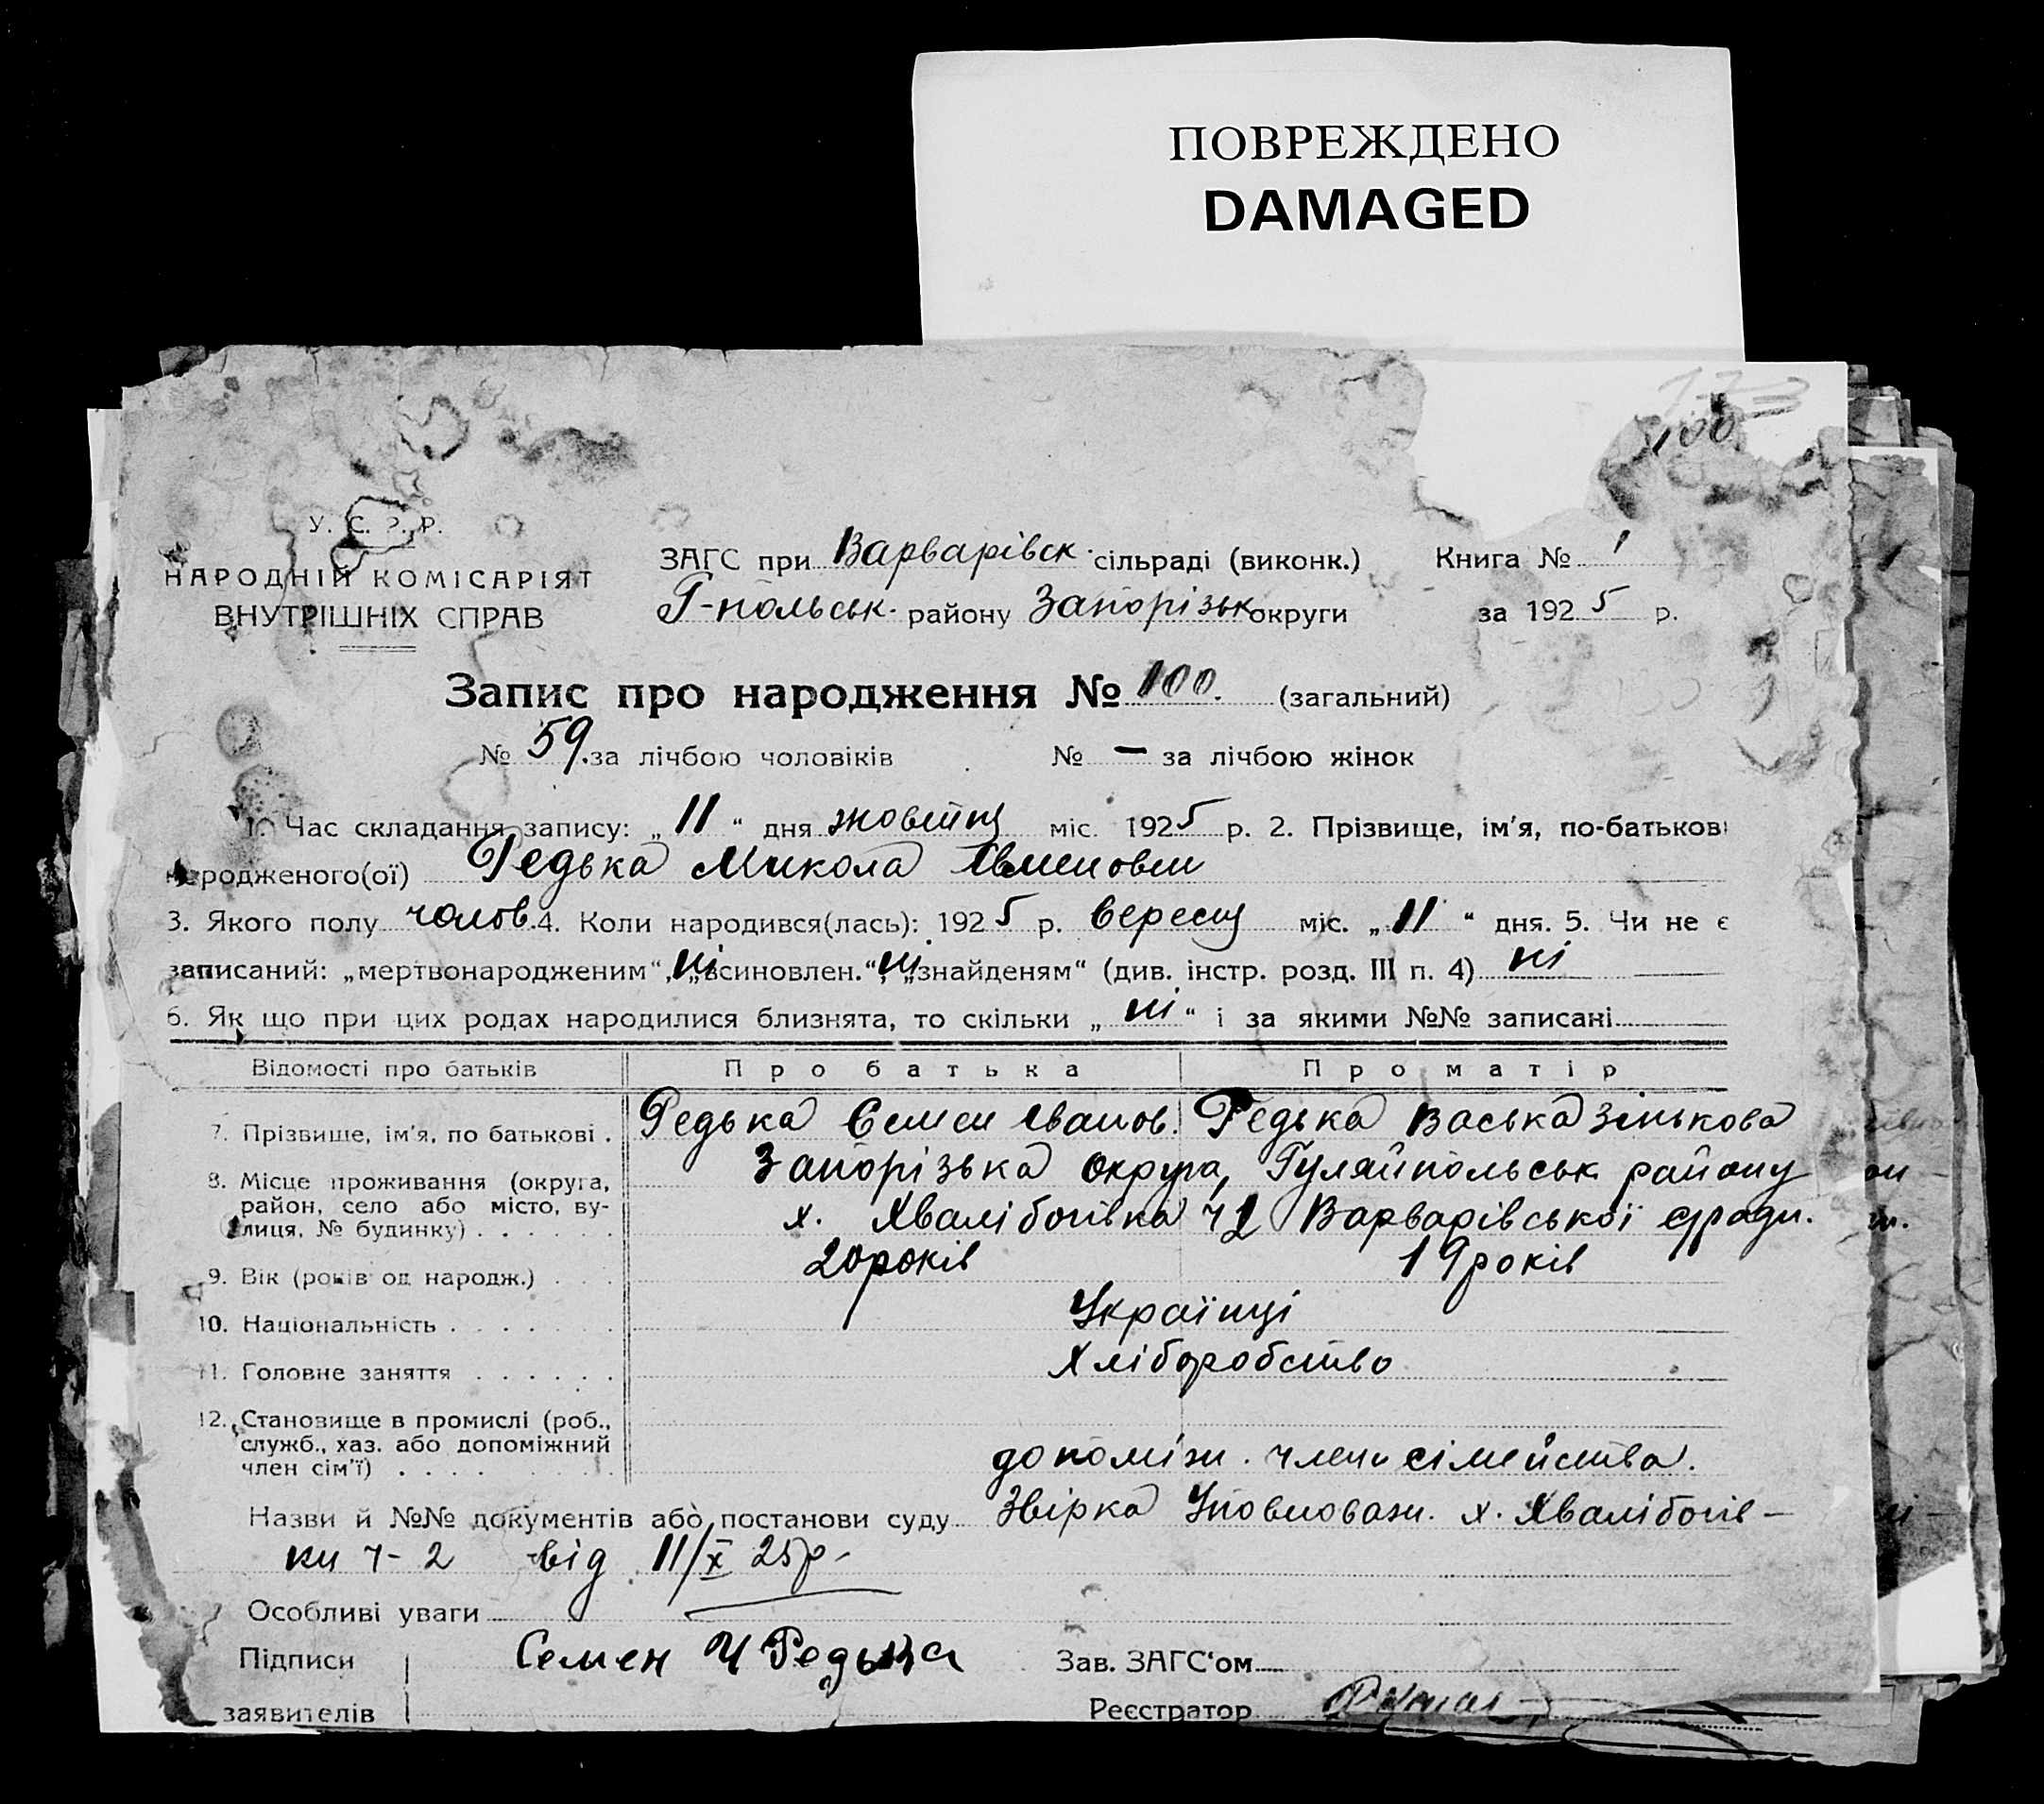 ПОВРЕЖДЕНО
DAMAGED
100
У. С. Р. Р.
НАРОДНІЙ КОМІСАРІЯТ
ВНУТРІШНІХ СПРАВ
ЗАГС при Варварівск. сільраді (виконк.) Книга № 1
Г-польськ. району Запорізьк округи за 1925 р.
Запис про народження № 100. (загальний)
№ 59. за лічбою чоловіків № — за лічбою жінок
1. Час складання запису: „11“ дня жовтня міс. 1925 р. 2. Прізвище, ім'я, по-батькові
народженого(ої) Редька Микола
3. Якого полу чолов. 4. Коли народився(лась): 1925 р. вересня міс. „11“ дня. 5. Чи не є
записаний: „мертвонародженим“, ні „всиновлен.“ ні, „знайденям“ (див. інстр. розд. III п. 4) ні
6. Як що при цих родах народилися близнята, то скільки „ні“ і за якими №№ записані
Відомості про батьків Про батька Про матір
7. Прізвище, ім'я, по батькові . Редька Семен Іванов. Редька Васька Зінькова
8. Місце проживання (округа, район, село або місто, вулиця, № будинку) . . . . . . Запорізька округа, Гуляйпольськ району
х. Хвалібогівка ч 2 Варварівської с/ради.
9. Вік (років од народж.) . . . 20 років 19 років
10. Національність . . . . . . Українці
11. Головне заняття . . . . . . Хліборобство
12. Становище в промислі (роб., служб., хаз. або допоміжний член сім'ї) . . . . допоміжн. члени сімейства.
Назви й №№ документів або постанови суду Звірка Уповноваж. х. Хвалібогів-
ки ч-2 від 11/X 25р-
Особливі уваги
Підписи Семен И Редька Зав. ЗАГС'ом
заявителів Реєстратор